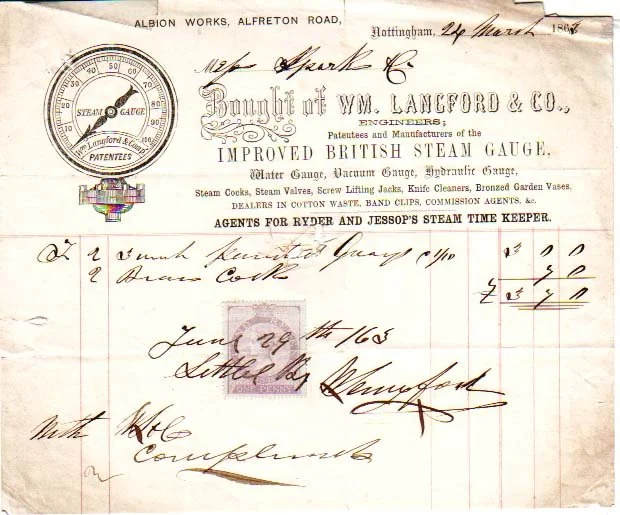 ALBION WORKS, ALFRETON ROAD,
Nottingham, 24 March 1863
Messrs Spark & Co
10 20 30 40 50 60 70 80 90 100
STEAM GAUGE
Wm. Langford & Comp.
PATENTEES
Bought of WM. LANGFORD & CO.,
ENGINEERS;
Patentees and Manufacturers of the
IMPROVED BRITISH STEAM GAUGE,
Water Gauge, Vacuum Gauge, Hydraulic Gauge,
Steam Cocks, Steam Valves, Screw Lifting Jacks, Knife Cleaners, Bronzed Garden Vases,
DEALERS IN COTTON WASTE, BAND CLIPS, COMMISSION AGENTS, &c.
AGENTS FOR RYDER AND JESSOP'S STEAM TIME KEEPER.
2 3 Gauges 3 0 0
2 Brass Cock 7 0
£ 3 7 0
June 29th /63
Settled By
ONE PENNY
W Langford
With W L & C
Compliments